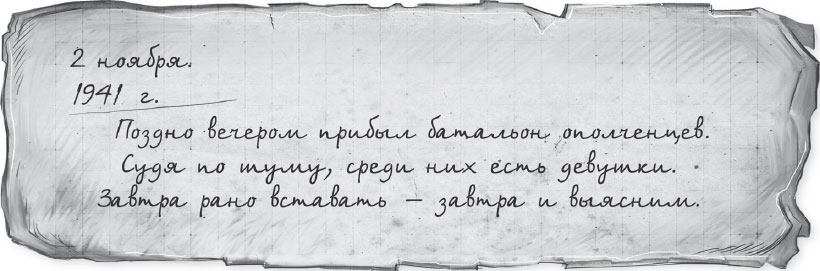 2 ноября.
1941 г.
Поздно вечером прибыл батальон ополченцев.
Судя по шуму, среди них есть девушки.
Завтра рано вставать — завтра и выясним.